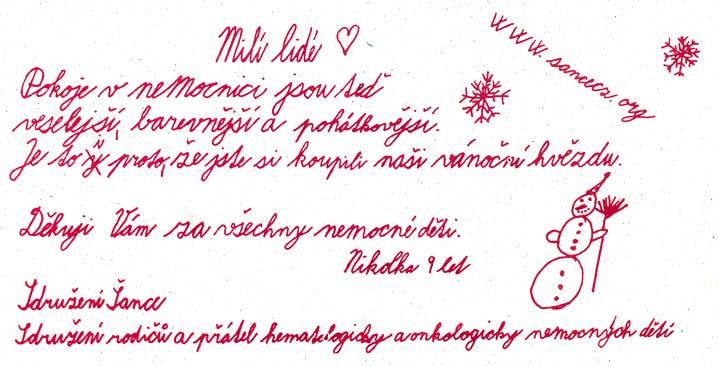 Milí lidé ♡
www.sancecz.org
Pokoje v nemocnici jsou teď
veselejší, barevnější a pohátkovější.
Je to proto, že jste si koupili naši vánoční hvězdu.
Děkuji Vám za všechny nemocné děti.
Nikolka 9 let
Sdružení Šance
Sdružení rodičů a přátel hematologicky a onkologicky nemocných dětí